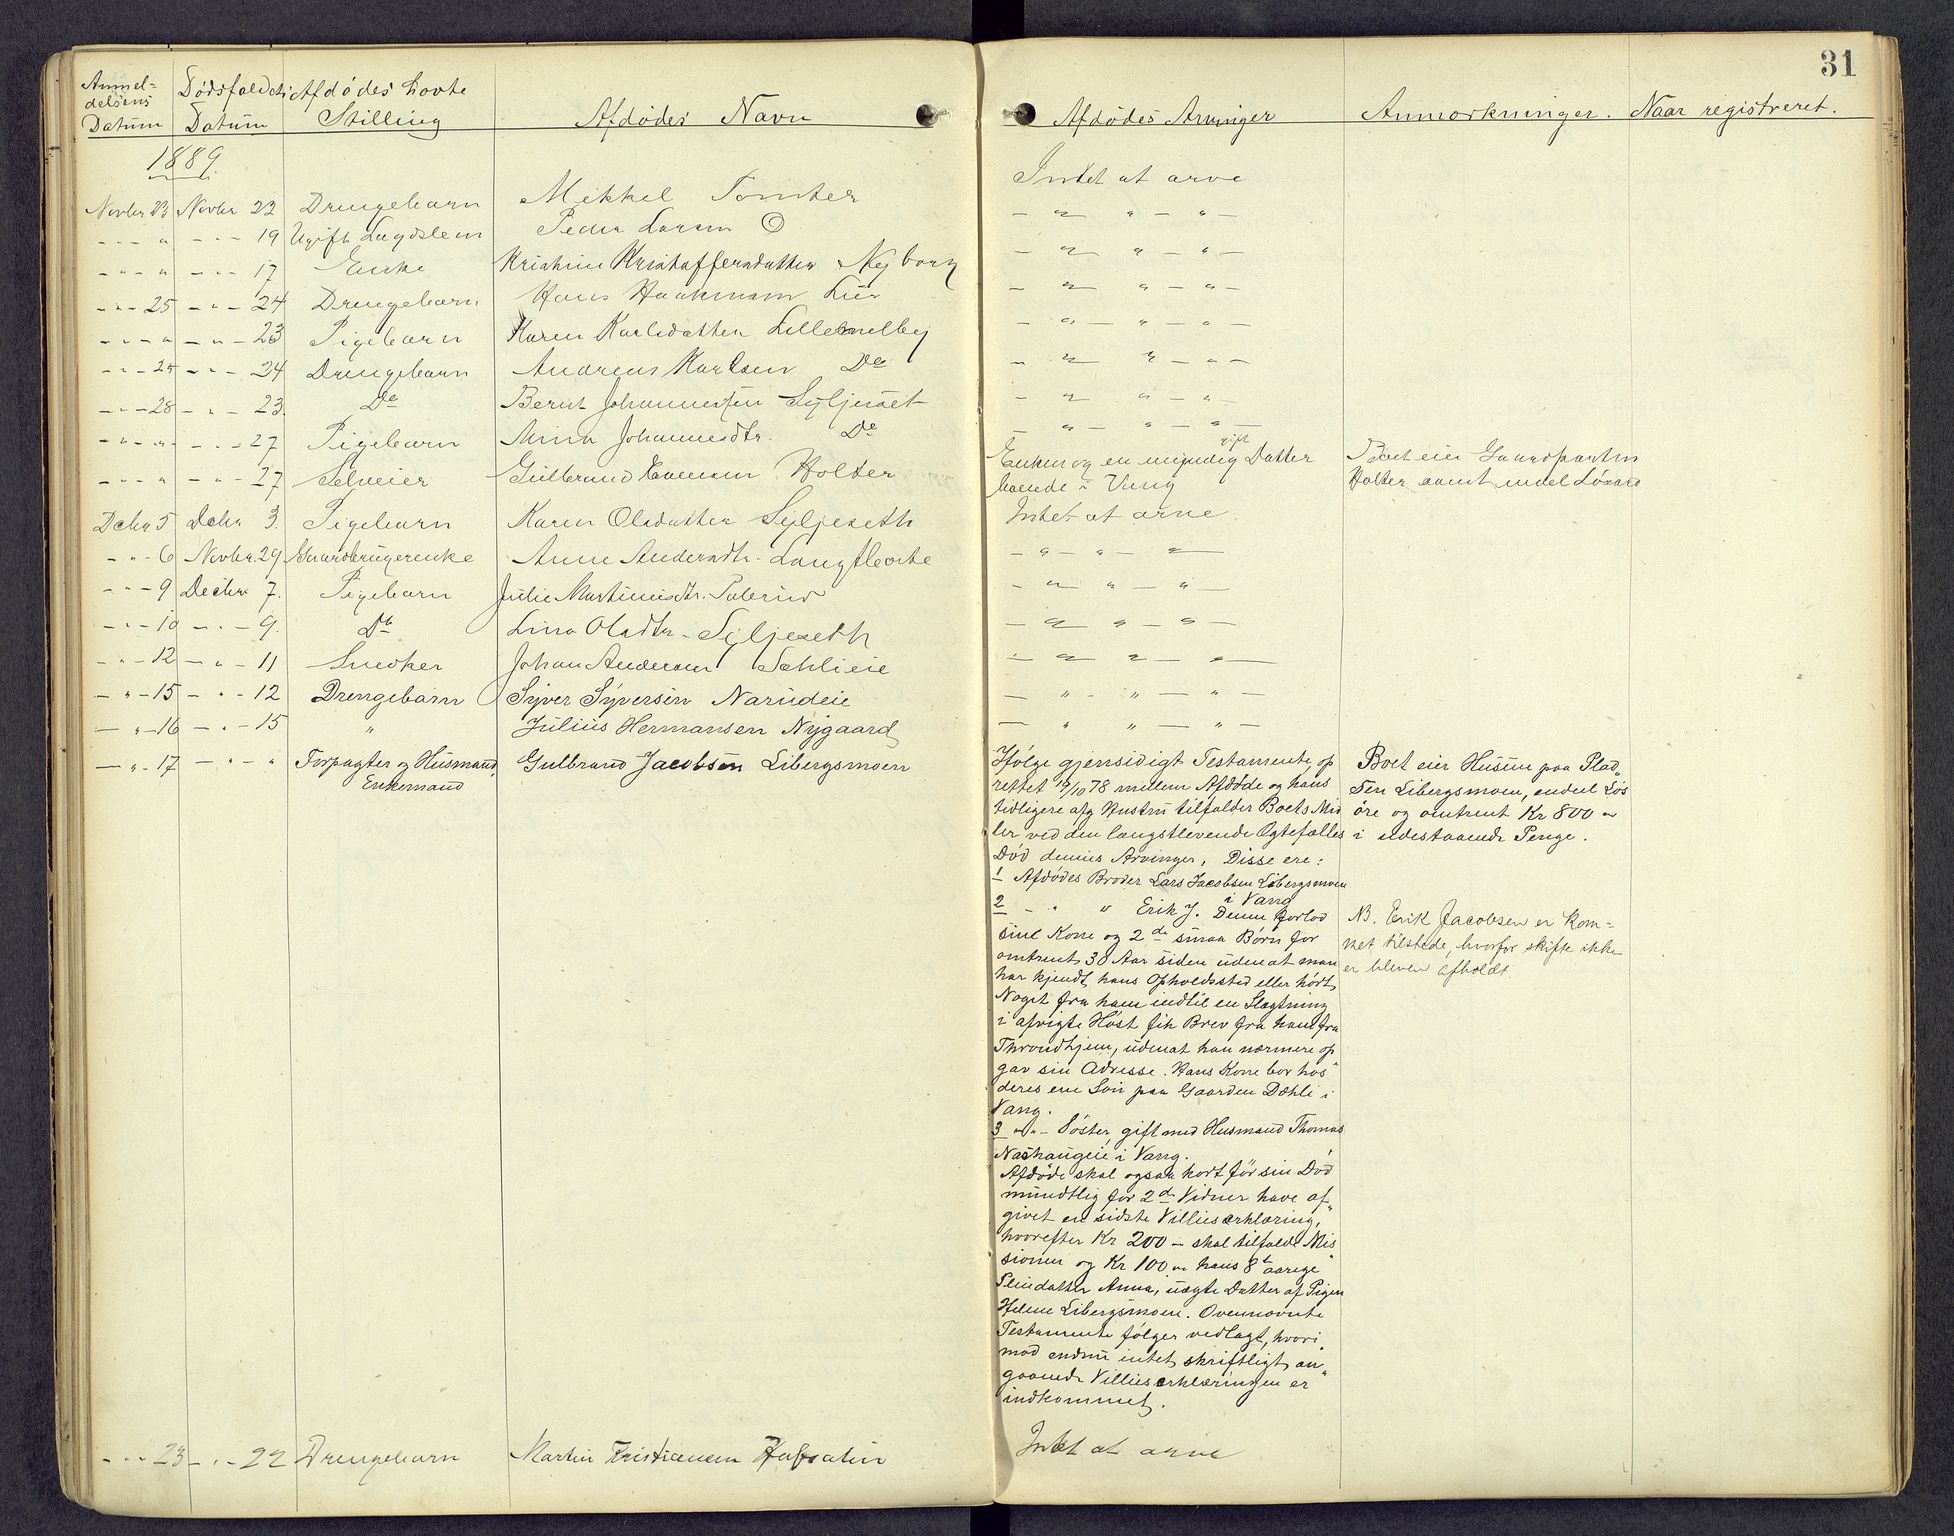 31
Anmel-
delsens
Datum
Dødsfaldets
Datum
Afdødes Livets
Stilling
Afdødes Navn
Afdødes Arvinger
Anmærkninger.
Naar registreret.
1889.
Novbr 23 Novbr 22 Drengebarn Mikkel Tomter Intet at arve
- - - " - - - 19 Ugift Lægdslem Peder Larsen - " " - " -
- " - " - " - 17 Enke Kristine Kristoffersdatter Nyborg - " " - " -
- " - 25 - " - 24 Drengebarn Hans Haakensen Lier - " " - " -
- " - " - " - 23 Pigebarn Karen Karlsdatter Lillemelby - " - " - " -
- " - 25 - " - 24 Drengebarn Andreas Karlsen Do - " " - " -
- " - 28 - " - 23. Do Bernt Johannessen Syljeset - " " - "
- " - " - - " - 27 Pigebarn Mina Johannesdtr. Do - " - " - " -
- " - " - " - 27 Selveier Gulbrand Evensen Holter
gift
Enken og en myndig Datter
boende i Vang
Boet eier Gaardparten
Holter samt endel Løsøre
Debr 5 Debr 3. Pigebarn Karen Olsdatter Syljeseth Intet at arve
- " - 6 Novbr. 29 Gaardbrugerenke Anne Andersdtr. - " - " - "
- " - 9 Decbr 7. Pigebarn Julie Martinusdtr. - " " - " -
- " - 10 - " - 9. Do Lina Olsdtr - Syljeseth - " " - " -
- " - 12 - " - 11 Snedker Johan Andersen Sæhlieie - " " - "
- " - 15 - " - 12 Drengebarn Syver Syversen Narudeie - " - " - " -
- " - 16 - " - 15 " Julius Hermansen Nygaard - " " - " -
- " - 17 - " - " Forpagter og Husmand, Gulbrand Jacobsen Libergsmoen
Enkemand
Ifølge gjensidigt Testamente, op
rettet 19/10 78 mellem Afdøde og hans
tidligere afg Hustru tilfalder Boets Mid
ler ved den længstlevende Ægtefælles
Død dennes Arvinger, Disse ere:
1 Afdødes Broder Lars Jacobsen Libergsmoen
i Vang
2 - " " Erik J. Denne forlod
sine Kone og 2de smaa Børn for
omtrent 30 Aar siden uden at man
har kjendt hans Opholdssted eller hørt
Noget fra ham indtil en Slægtning
i afvigte Høst fik Brev fra ham fra
Throndhjem, uden at han nærmere op
gav sin Adresse. Hans Kone bor hos
deres ene Søn paa Gaarden Dæhli i
Vang.
3 - " - Søster, gift med Husmand Thomas
Nashaugeie i Vang.
Afdøde skal ogsaa kort før sin Død
mundtlig for 2de Vidner have af"
givet en sidste Villieserklæring,
hvorefter Kr 200 - skal tilfalde Mis
sionen og Kr 100 - hans 8 aarige
Pleiedatter Anna, uægte Datter af Pigen
Helene Libergsmoen. Ovennævnte
Testamente følger vedlagt, hvori"
mod endnu intet skriftligt an"
gaaende Villieserklæringen er
indkommet.
Boet eier Husene paa Plad"
sen Libergsmoen, endeel Løs
øre og omtrent Kr 800 -
i udestaaende Penge.
NB. Erik Jacobsen er kom=
met tilstede, hvorfor skifte ikke
er bleven afholdt
- - - 23 - " - 22 Drengebarn Martin Kristiansen Intet at arve